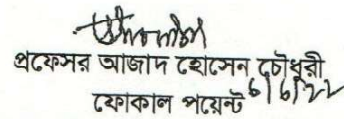 প্রফেসর আজাদ হোসেন চৌধুরী
ফোকাল পয়েন্ট 6/6/22